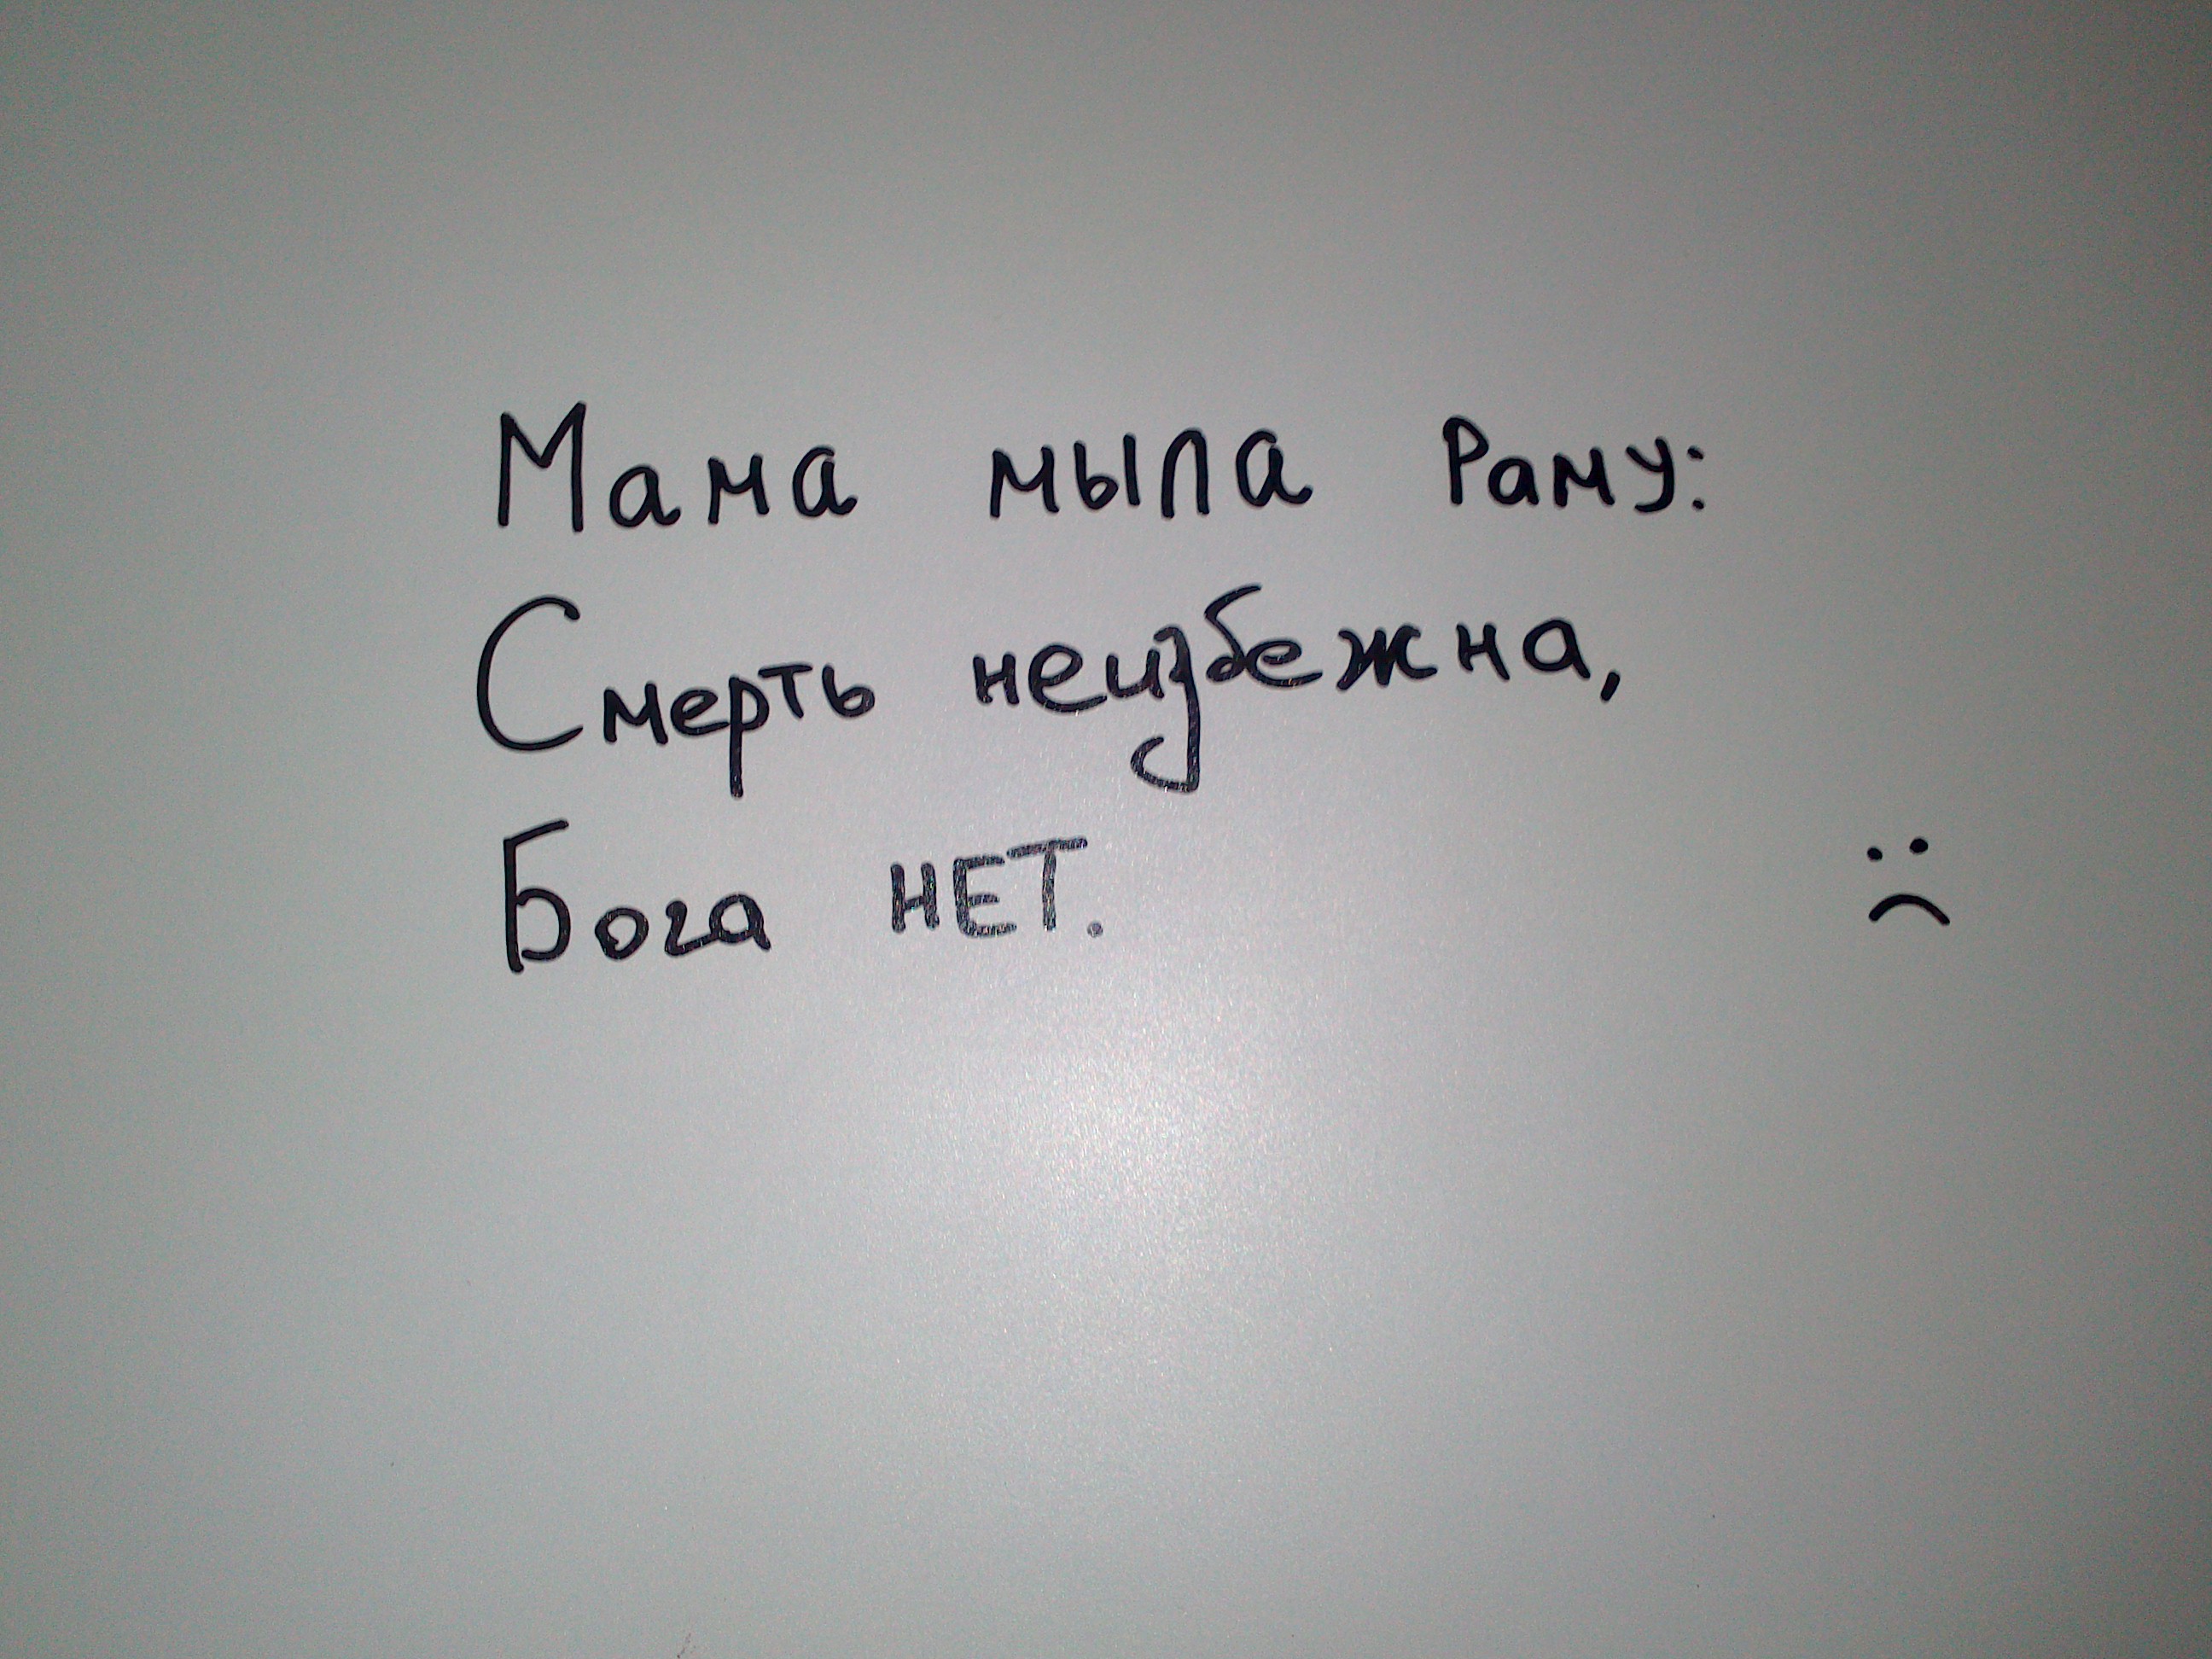 Мама мыла Раму:
Смерть неизбежна,
Бога НЕТ. :(